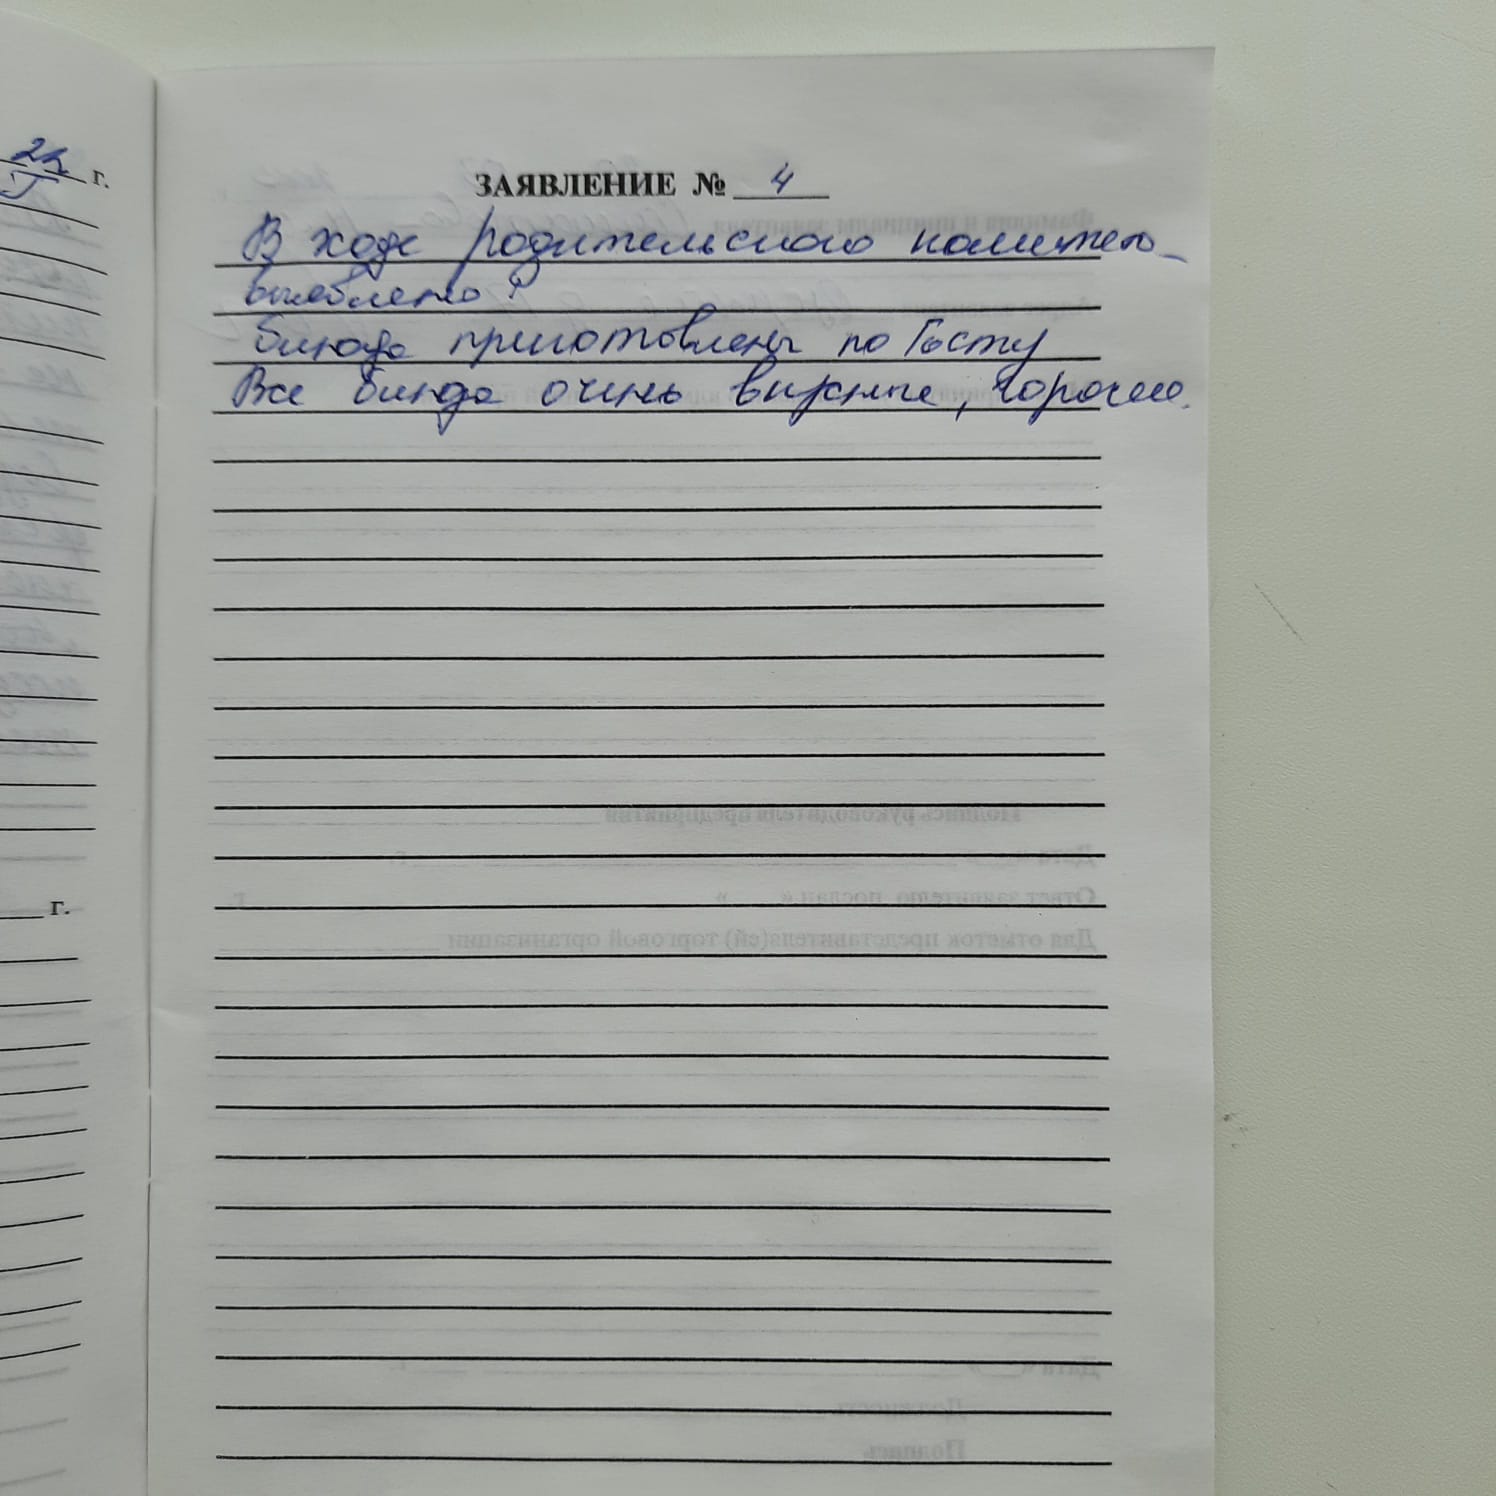 ЗАЯВЛЕНИЕ № 4
В ходе родительского комитета
выявлено:
Блюда приготовлены по Госту
Все блюда очень вкусные, горячие.
г.
г.